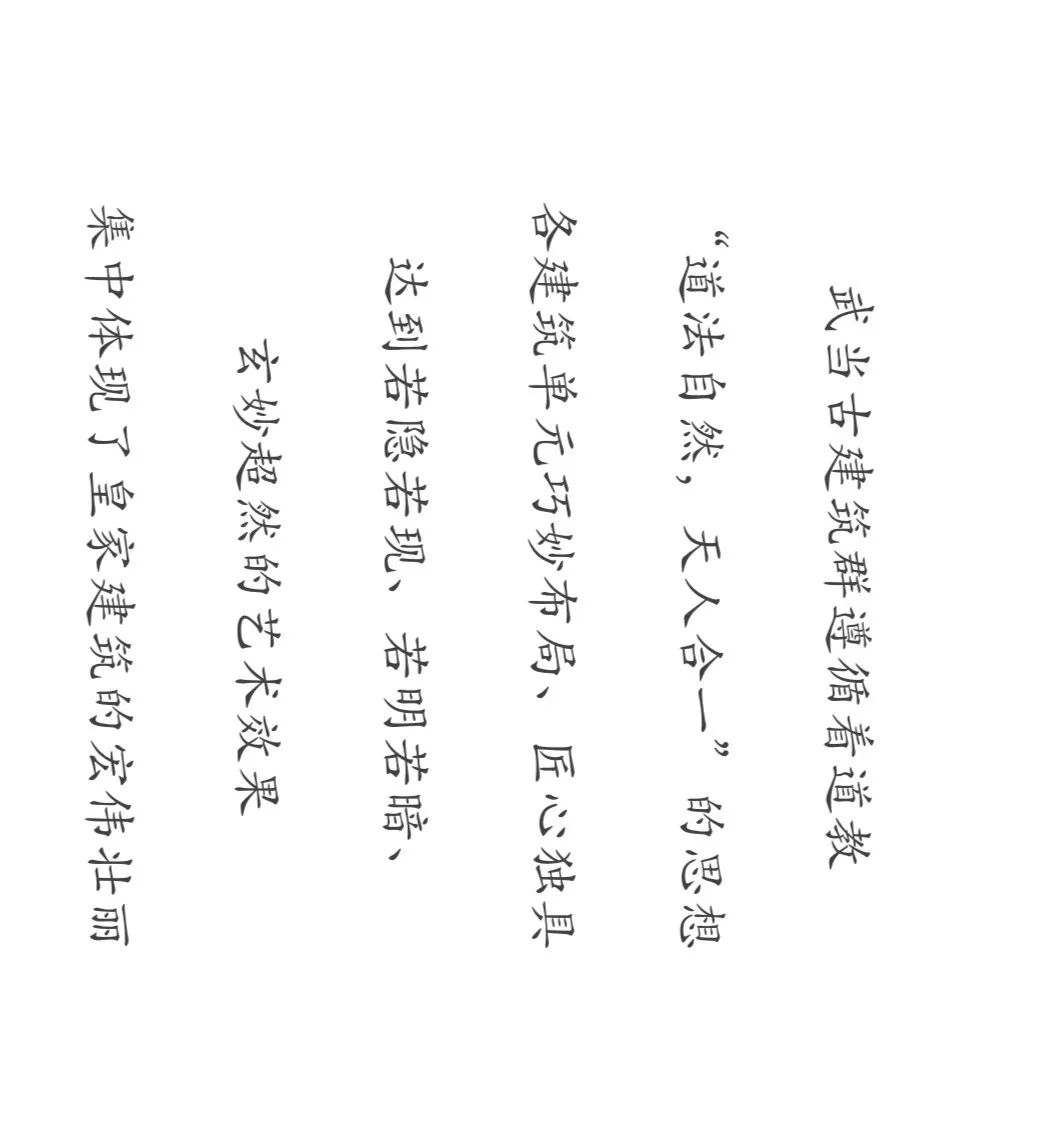 武当古建筑群遵循着道教
“道法自然，天人合一”的思想
各建筑单元巧妙布局、匠心独具
达到若隐若现、若明若暗、
玄妙超然的艺术效果
集中体现了皇家建筑的宏伟壮丽